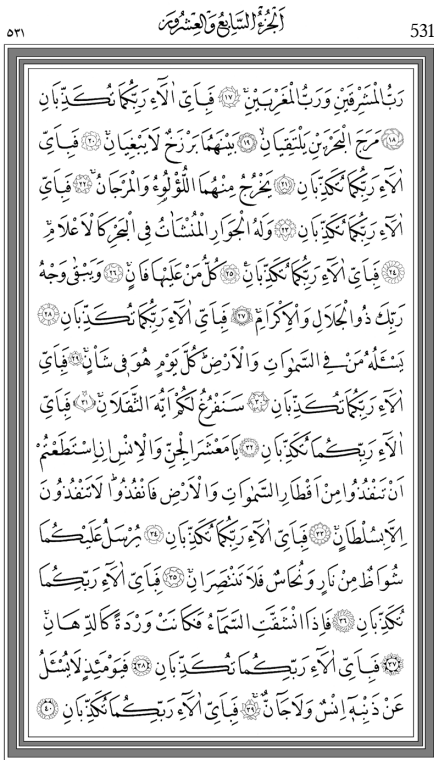 ٥٣١ اَلْجُزْءُ السَّابِعُ وَالْعِشْرُونَ 531
رَبُّ الْمَشْرِقَيْنِ وَرَبُّ الْمَغْرِبَيْنِۚ ﴿١٧﴾ فَبِاَيِّ اٰلَٓاءِ رَبِّكُمَا تُكَذِّبَانِ
﴿١٨﴾ مَرَجَ الْبَحْرَيْنِ يَلْتَقِيَانِۙ ﴿١٩﴾ بَيْنَهُمَا بَرْزَخٌ لَا يَبْغِيَانِۚ ﴿٢٠﴾ فَبِاَيِّ
اٰلَٓاءِ رَبِّكُمَا تُكَذِّبَانِ ﴿٢١﴾ يَخْرُجُ مِنْهُمَا اللُّؤْلُؤُ۬ وَالْمَرْجَانُۚ ﴿٢٢﴾ فَبِاَيِّ
اٰلَٓاءِ رَبِّكُمَا تُكَذِّبَانِ ﴿٢٣﴾ وَلَهُ الْجَوَارِ الْمُنْشَاٰتُ فِي الْبَحْرِ كَالْاَعْلَامِۚ
﴿٢٤﴾ فَبِاَيِّ اٰلَٓاءِ رَبِّكُمَا تُكَذِّبَانِ۟ ﴿٢٥﴾ كُلُّ مَنْ عَلَيْهَا فَانٍۚ ﴿٢٦﴾ وَيَبْقٰى وَجْهُ
رَبِّكَ ذُو الْجَلَالِ وَالْاِكْرَامِۚ ﴿٢٧﴾ فَبِاَيِّ اٰلَٓاءِ رَبِّكُمَا تُكَذِّبَانِ ﴿٢٨﴾
يَسْـَٔلُهُ مَنْ فِي السَّمٰوَاتِ وَالْاَرْضِۜ كُلَّ يَوْمٍ هُوَ فِي شَأْنٍۚ ﴿٢٩﴾ فَبِاَيِّ
اٰلَٓاءِ رَبِّكُمَا تُكَذِّبَانِ ﴿٣٠﴾ سَنَفْرُغُ لَكُمْ اَيُّهَ الثَّقَلَانِۚ ﴿٣١﴾ فَبِاَيِّ
اٰلَٓاءِ رَبِّكُمَا تُكَذِّبَانِ ﴿٣٢﴾ يَا مَعْشَرَ الْجِنِّ وَالْاِنْسِ اِنِ اسْتَطَعْتُمْ
اَنْ تَنْفُذُوا مِنْ اَقْطَارِ السَّمٰوَاتِ وَالْاَرْضِ فَانْفُذُواۜ لَا تَنْفُذُونَ
اِلَّا بِسُلْطَانٍۚ ﴿٣٣﴾ فَبِاَيِّ اٰلَٓاءِ رَبِّكُمَا تُكَذِّبَانِ ﴿٣٤﴾ يُرْسَلُ عَلَيْكُمَا
شُوَاظٌ مِنْ نَارٍ وَنُحَاسٌ فَلَا تَنْتَصِرَانِۚ ﴿٣٥﴾ فَبِاَيِّ اٰلَٓاءِ رَبِّكُمَا
تُكَذِّبَانِ ﴿٣٦﴾ فَاِذَا انْشَقَّتِ السَّمَٓاءُ فَكَانَتْ وَرْدَةً كَالدِّهَانِۚ
﴿٣٧﴾ فَبِاَيِّ اٰلَٓاءِ رَبِّكُمَا تُكَذِّبَانِ ﴿٣٨﴾ فَيَوْمَئِذٍ لَا يُسْـَٔلُ
عَنْ ذَنْبِهٖٓ اِنْسٌ وَلَا جَٓانٌّۚ ﴿٣٩﴾ فَبِاَيِّ اٰلَٓاءِ رَبِّكُمَا تُكَذِّبَانِ ﴿٤٠﴾